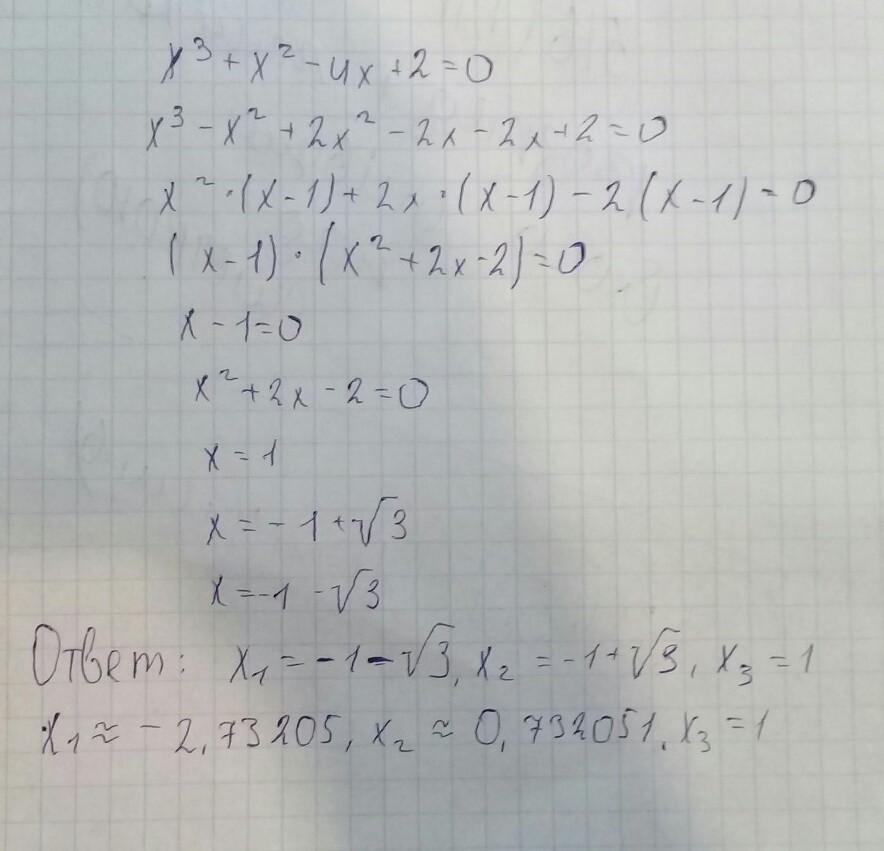 x³ + x² - 4x + 2 = 0
x³ - x² + 2x² - 2x - 2x + 2 = 0
x² · (x - 1) + 2x · (x - 1) - 2(x - 1) = 0
(x - 1) · (x² + 2x - 2) = 0
x - 1 = 0
x² + 2x - 2 = 0
x = 1
x = -1 + √3
x = -1 - √3
Ответ: x₁ = -1 - √3, x₂ = -1 + √3, x₃ = 1
x₁ ≈ -2,73205, x₂ ≈ 0,732051, x₃ = 1